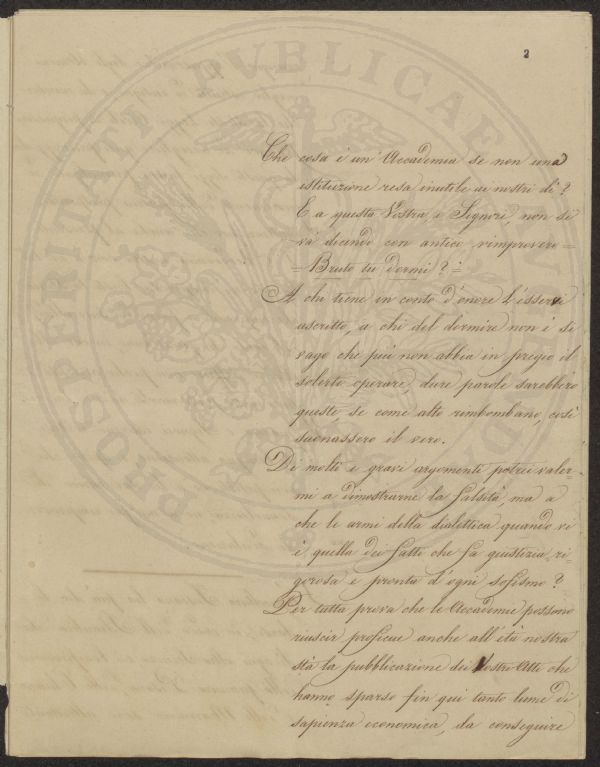 2
Che cosa è un' Accademia se non una
istituzione resa inutile ai nostri dì?
E a questa Vostra, o Signori, non si
và dicendo con antico rimprovero =
= Bruto tu dormi? =
A chi tiene in conto d'onore l'esservi
ascritto, a chi del dormire non è sì
vago che più non abbia in pregio il
solerte operare, dure parole sarebbero
queste se come alto rimbombano, così
suonassero il vero.
Di molti e gravi argomenti potrei valer=
mi a dimostrarne la falsità, ma a
che le armi della dialettica quando vi
è quella dei fatti che fa giustizia ri=
gorosa e pronta d'ogni sofismo?
Per tutta prova che le Accademie possono
riuscir proficue anche all'età nostra
stà la pubblicazione dei Vostri Atti che
hanno sparso fin qui tanto lume di
sapienza economica, da conseguire
PROSPERITATI PUBLICAE